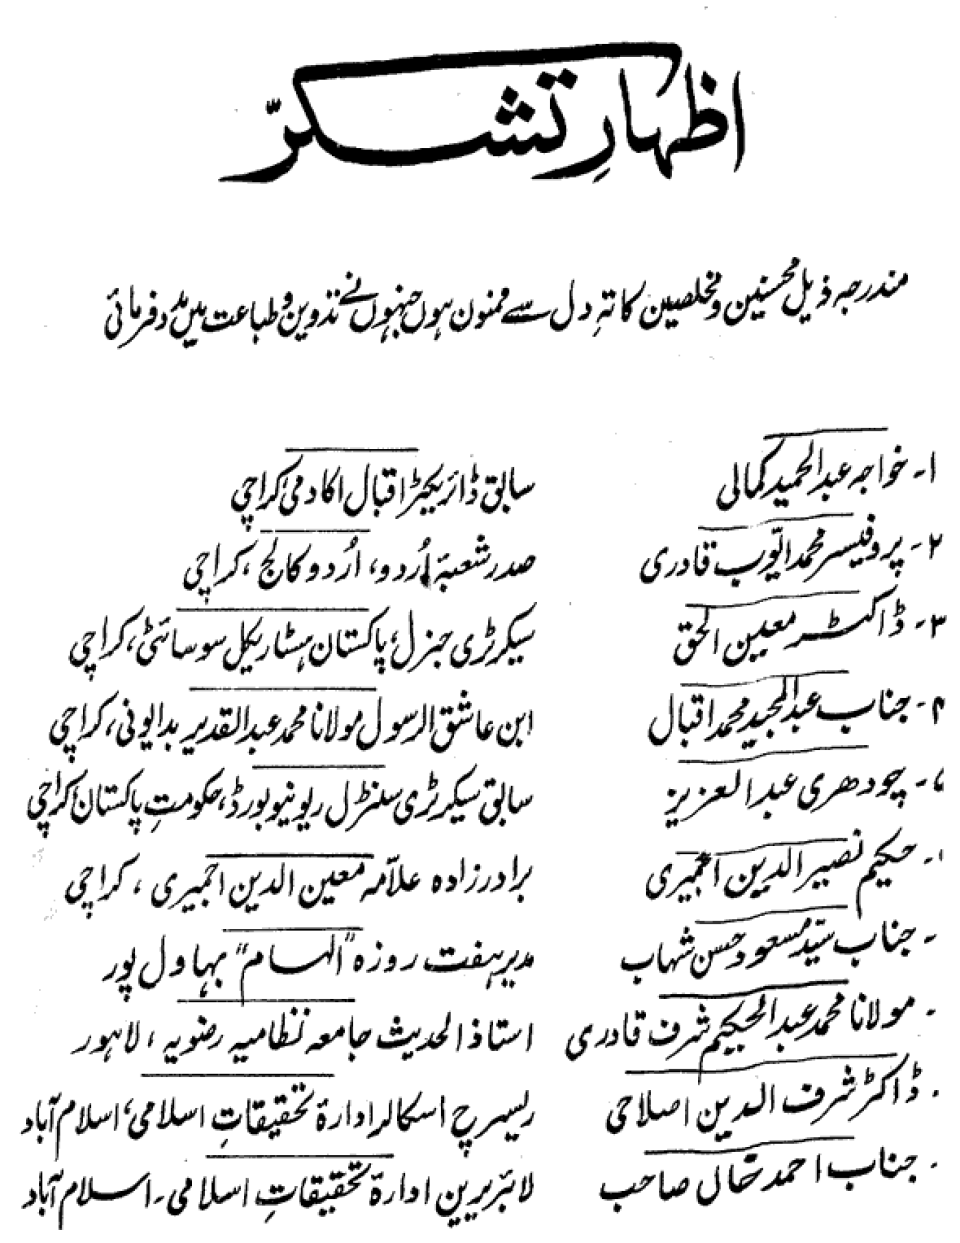 اظہارِ تشکّر
مندرجہ ذیل محسنین و مخلصین کا تہِ دل سے ممنون ہوں جنہوں نے تدوین و طباعت میں مدد فرمائی
۱- خواجہ عبدالحمید کمالی سابق ڈائریکٹر اقبال اکادمی کراچی
۲- پروفیسر محمد ایّوب قادری صدر شعبۂ اُردو، اُردو کالج، کراچی
۳- ڈاکٹر معین الحق سیکرٹری جنرل پاکستان ہسٹاریکل سوسائٹی، کراچی
۴- جناب عبدالمجید محمد اقبال ابن عاشق الرسول مولانا محمد عبدالقدیر بدایونی، کراچی
- چودھری عبدالعزیز سابق سیکرٹری سنٹرل ریونیو بورڈ، حکومتِ پاکستان کراچی
- حکیم نصیر الدین اجمیری برادرزادہ علاّمہ معین الدین اجمیری، کراچی
- جناب سیّد مسعود حسن شہاب مدیر ہفت روزہ "الہام" بہاول پور
- مولانا محمد عبدالحکیم شرف قادری استاذ الحدیث جامعہ نظامیہ رضویہ، لاہور
- ڈاکٹر شرف الدین اصلاحی ریسرچ اسکالر ادارۂ تحقیقاتِ اسلامی، اسلام آباد
- جناب احمد خاں صاحب لائبریرین ادارۂ تحقیقاتِ اسلامی - اسلام آباد